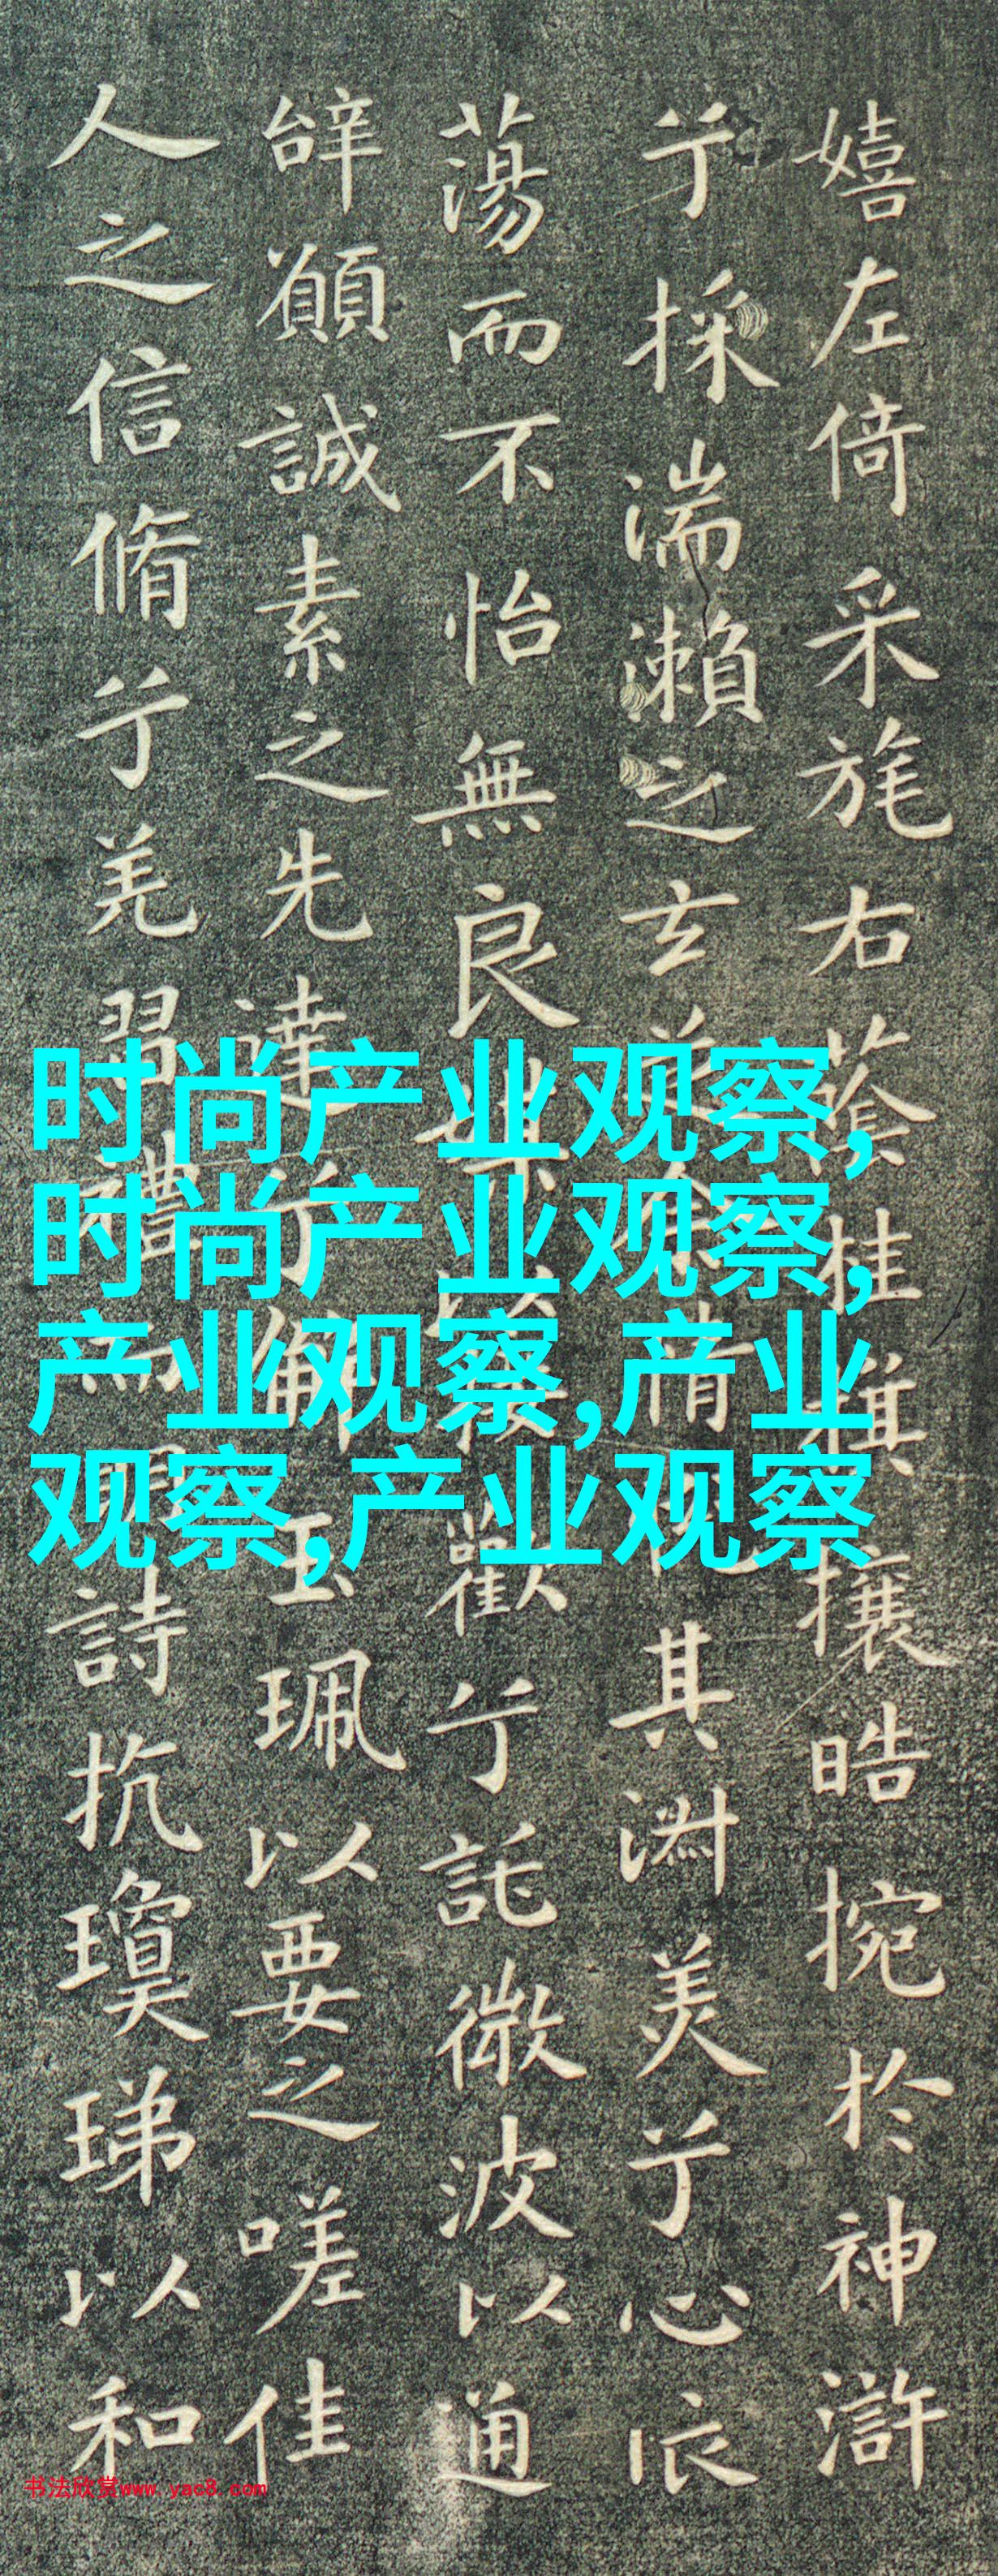 嬉左倚采旄右蔭桂旗攘皓捥於神滸
兮採湍瀨之玄芝余情悅其淑美兮心依
蕩而不怡無良媒以接歡兮託微波以通
辝願誠素之先達兮解玉珮以要之嗟佳
人之信脩兮羌習禮而明詩抗瓊珶以和
时尚产业观察,
时尚产业观察,
产业观察,产业
观察,产业观察
书法欣赏www.yac8.com